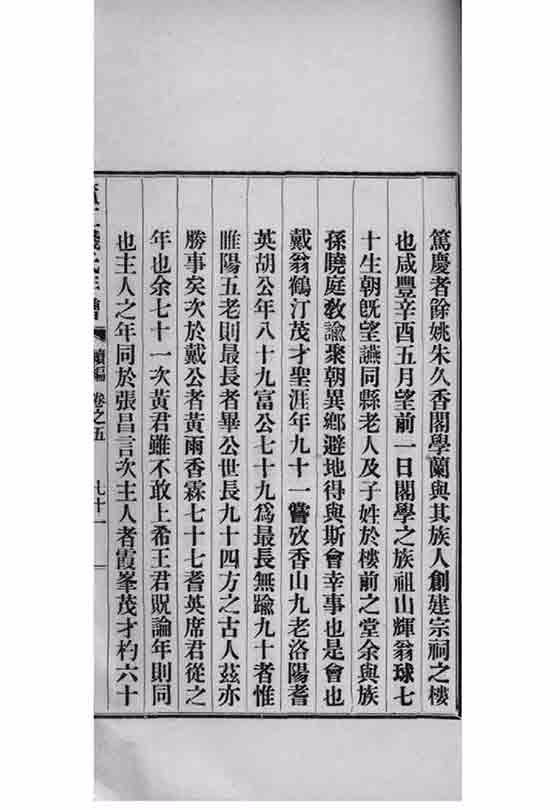 篤慶者餘姚朱久香閣學蘭與其族人創建宗祠之樓
也咸豐辛酉五月望前一日閣學之族祖山輝翁球七
十生朝旣望讌同縣老人及子姓於樓前之堂余與族
孫曉庭敎諭聚朝異鄕避地得與斯會幸事也是會也
戴翁鶴汀茂才聖涯年九十一嘗攷香山九老洛陽耆
英胡公年八十九富公七十九爲最長無踰九十者惟
睢陽五老則最長者畢公世長九十四方之古人茲亦
勝事矣次於戴公者黃雨香霖七十七耆英席君從之
年也余七十一次黃君雖不敢上希王君貺論年則同
也主人之年同於張昌言次主人者霞峯茂才杓六十
續編 卷之五 九十一